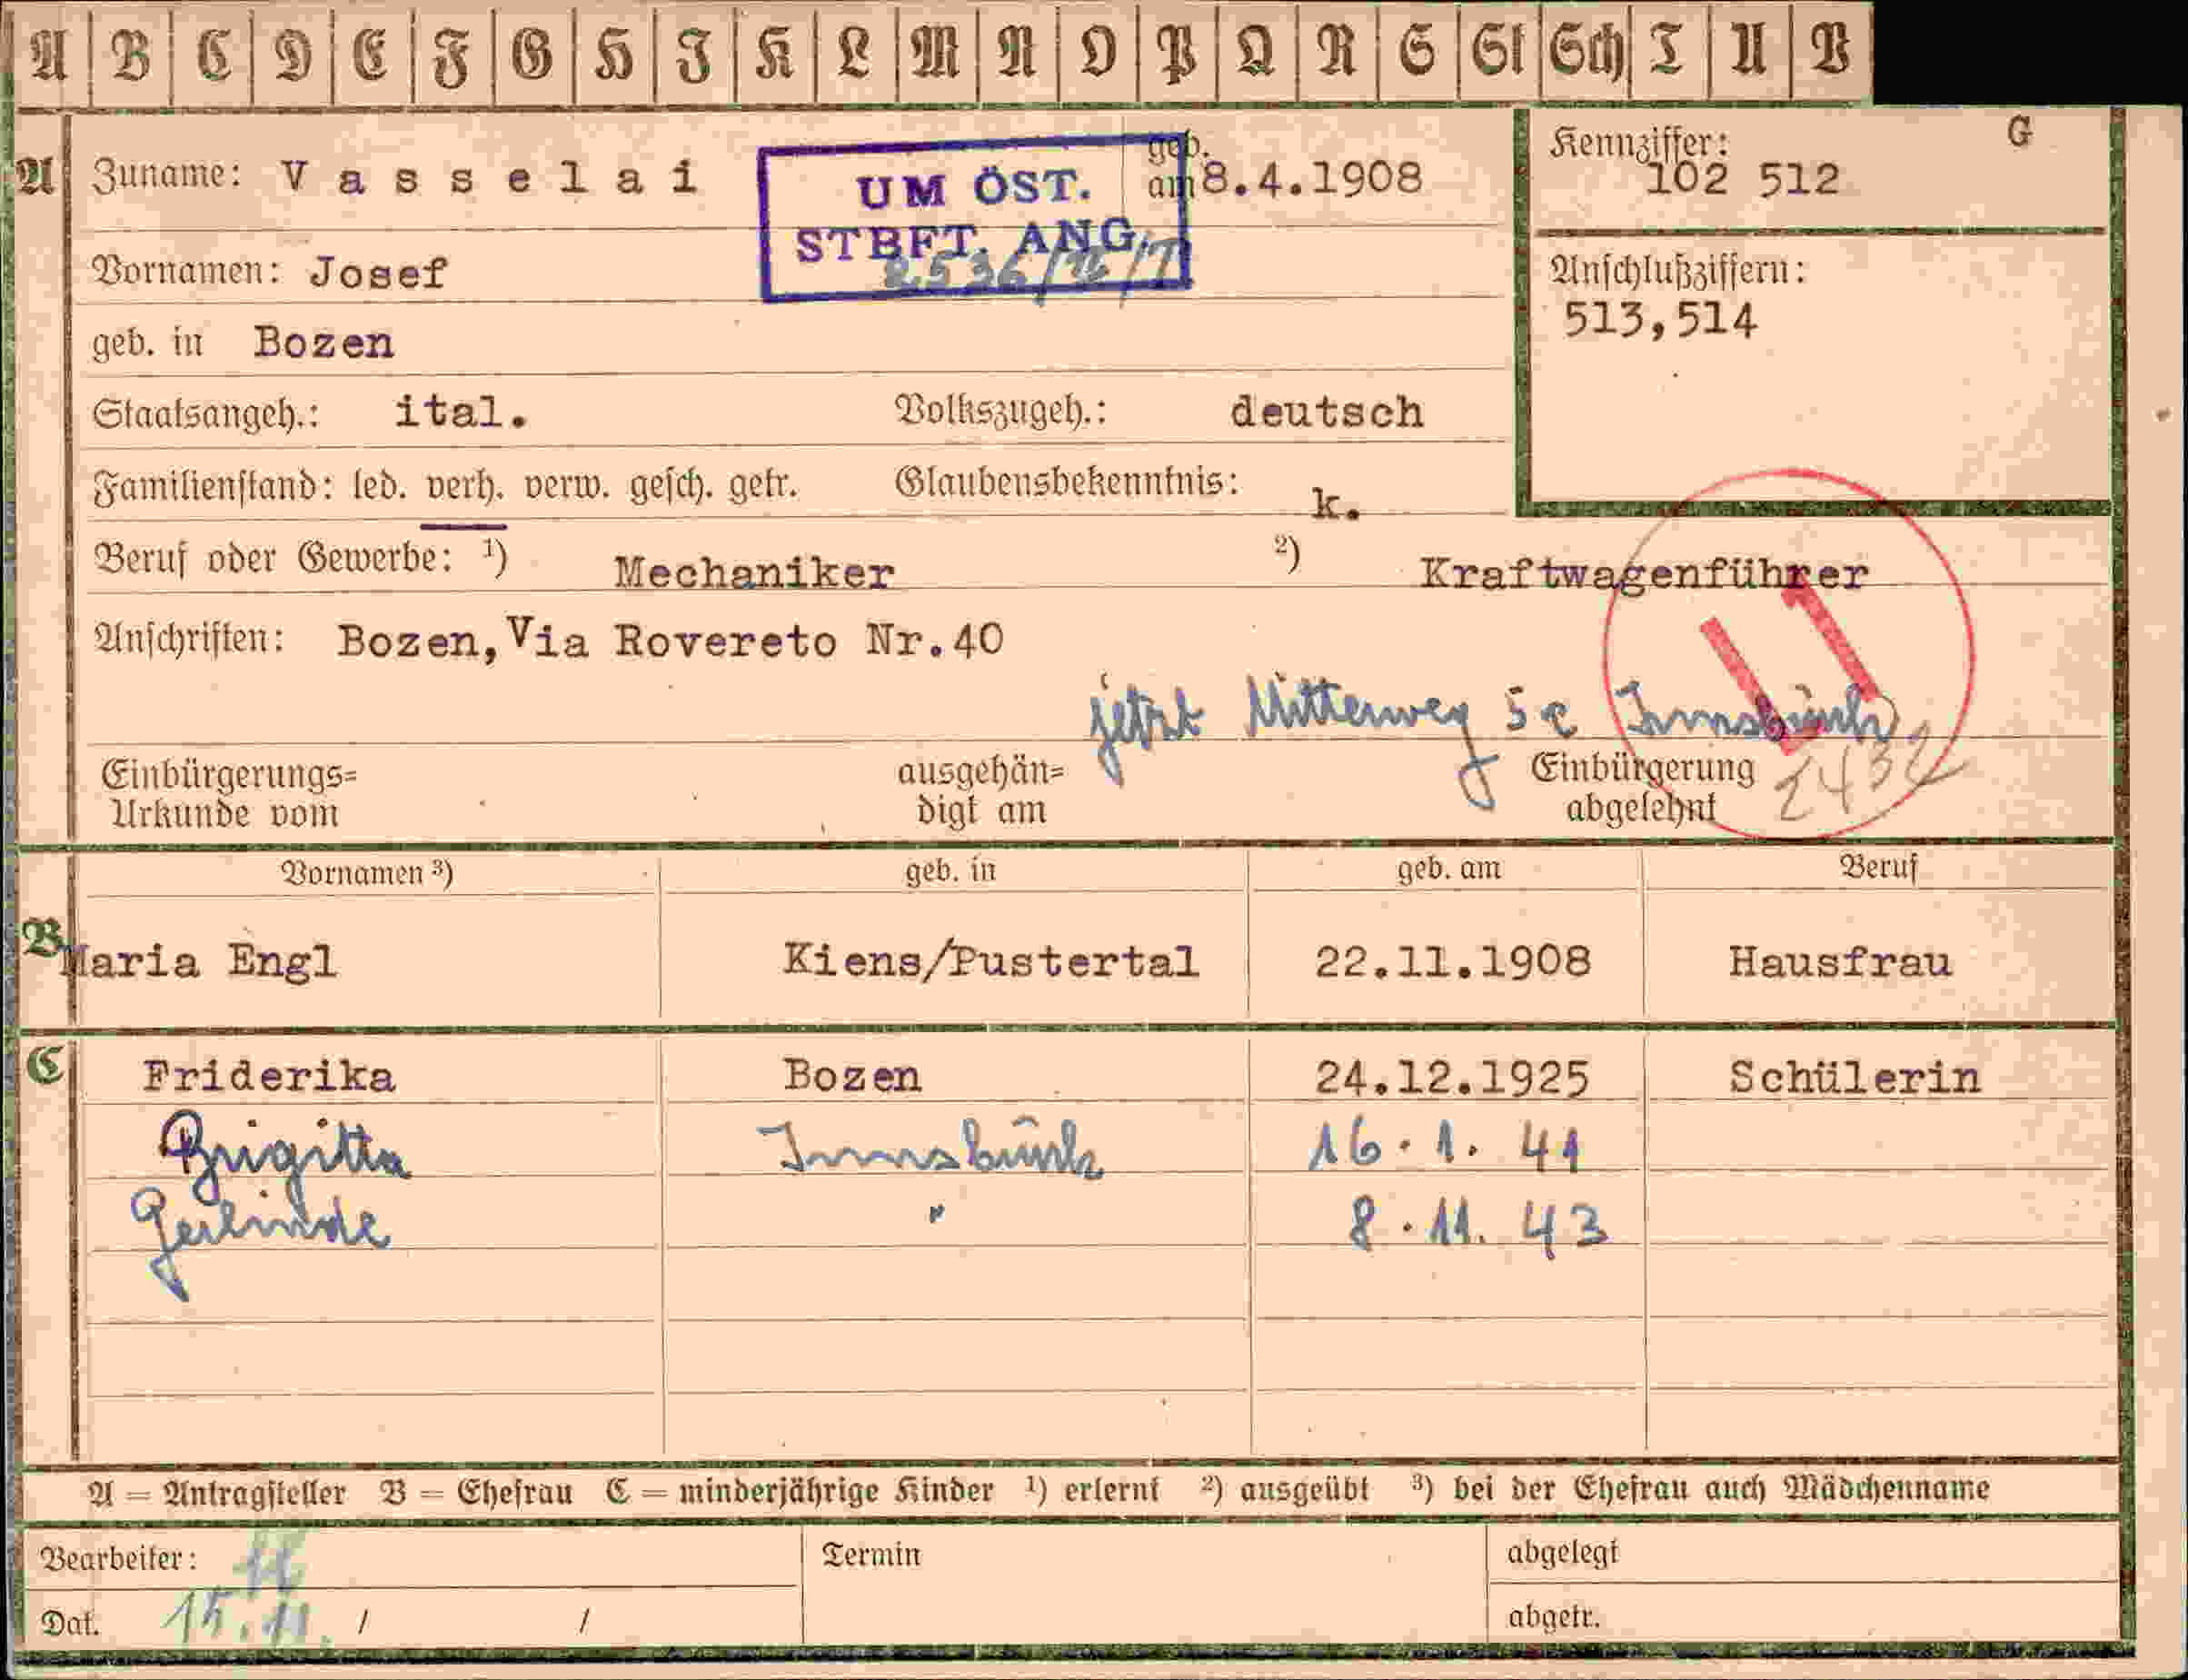 A B C D E F G H I K L M N O P Q R S St Sch T U V
A Zuname: Vasselai geb. am 8.4.1908
UM ÖST.
STBFT. ANG.
Kennziffer: G
102 512
Vornamen: Josef
Anschlußziffern:
513,514
geb. in Bozen
Staatsangeh.: ital. Volkszugeh.: deutsch
Familienstand: led. verh. verw. gesch. getr. Glaubensbekenntnis: k.
Beruf oder Gewerbe: ¹) Mechaniker ²) Kraftwagenführer
Anschriften: Bozen, Via Rovereto Nr.40
jetzt Mitterweg 5 Innsbruck
Einbürgerungs=
Urkunde vom
ausgehän=
digt am
Einbürgerung
abgelehnt
2432
Vornamen ³) geb. in geb. am Beruf
B Maria Engl Kiens/Pustertal 22.11.1908 Hausfrau
C Friderika Bozen 24.12.1925 Schülerin
Brigitta Innsbruck 16.1.41
Gerlinde " 8.11.43
A = Antragsteller B = Ehefrau C = minderjährige Kinder ¹) erlernt ²) ausgeübt ³) bei der Ehefrau auch Mädchenname
Bearbeiter: Termin abgelegt
Dat. 15.11. / / abgetr.